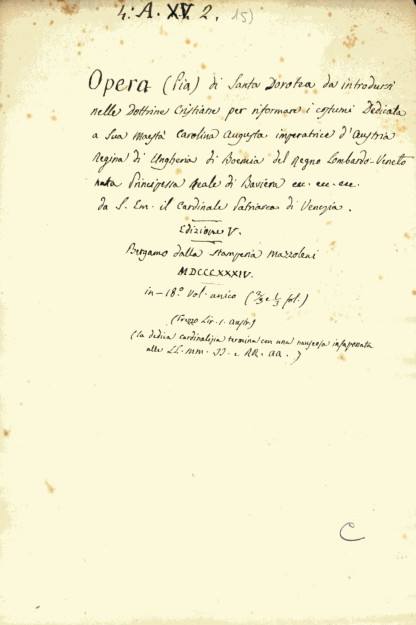 4. A. XV. 2. 15)
Opera (Pia) di Santa Dorotea da introdursi
nelle dottrine Cristiane per riformare i costumi Dedicata
a Sua Maestà Carolina Augusta imperatrice d'Austria
Regina di Ungheria di Boemia del Regno Lombardo-Veneto
nata Principessa Reale di Baviera ecc. ecc. ecc.
da S. Em. il Cardinale Patriarca di Venezia.
Edizione V.
Bergamo dalla Stamperia Mazzoleni
MDCCCXXXIV.
in-18.° Vol. unico (2/3 e 1/3 fol.)
(Prezzo Lir. 1. Austr.)
(la dedica cardinalizia termina con una nauseosa insaponata
alle LL. MM. II. e RR. AA.)
C